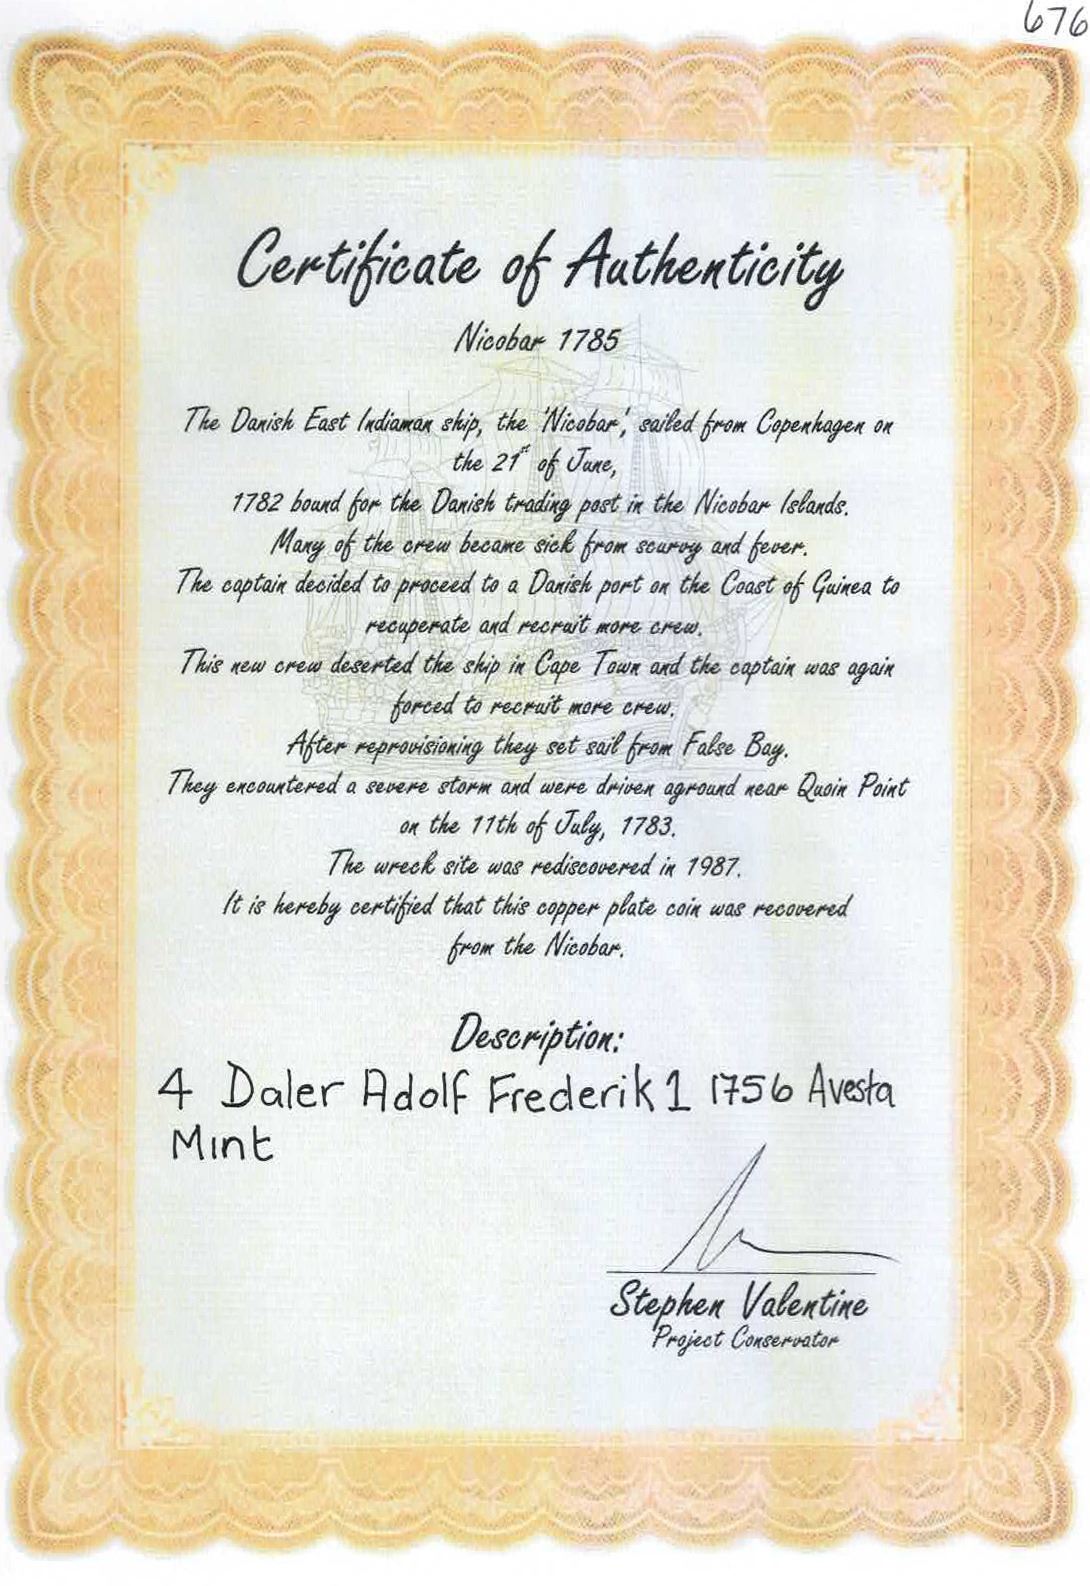 676
Certificate of Authenticity
Nicobar 1785
The Danish East Indiaman ship, the 'Nicobar', sailed from Copenhagen on
the 21st of June,
1782 bound for the Danish trading post in the Nicobar Islands.
Many of the crew became sick from scurvy and fever.
The captain decided to proceed to a Danish port on the Coast of Guinea to
recuperate and recruit more crew.
This new crew deserted the ship in Cape Town and the captain was again
forced to recruit more crew.
After reprovisioning they set sail from False Bay.
They encountered a severe storm and were driven aground near Quoin Point
on the 11th of July, 1783.
The wreck site was rediscovered in 1987.
It is hereby certified that this copper plate coin was recovered
from the Nicobar.
Description:
4 Daler Adolf Frederik 1 1756 Avesta
Mint
Stephen Valentine
Project Conservator